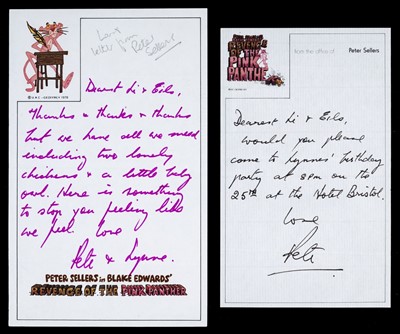 Love
letter from
Peter
Sellers
Dearest Li & Eils,
thanks & thanks & thanks
but we have all we need
including two lonely
chickens & a little baby
owl. Here is something
to stop you feeling like
we feel. Love
Pete & Lynne.
PETER SELLERS in BLAKE EDWARDS'
REVENGE OF THE PINK PANTHER
REVENGE
OF THE
PINK PANTHER
from the office of Peter Sellers
Dearest Li & Eils,
would you please
come to Lynnes' birthday
party at 8pm on the
25th at the Hotel Bristol.
Love
Pete